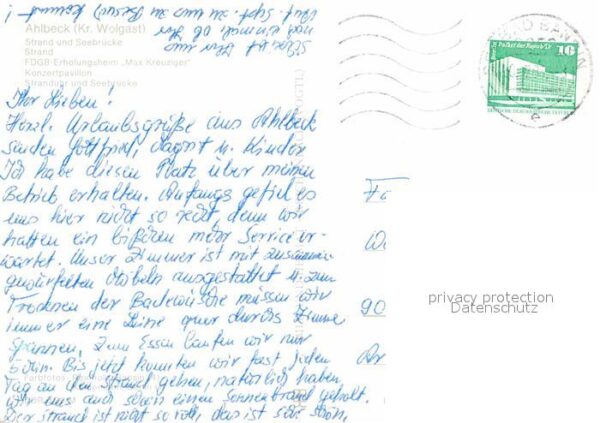 Ahlbeck (Kr. Wolgast)
Strand und Seebrücke
Strand
FDGB-Erholungsheim „Max Kreuziger“
Konzertpavillon
Strandübr und Seebrücke
Ihr Lieben!
Herzl. Urlaubsgrüße aus Ahlbeck
senden Gottfried, Dagmar u. Kinder
Ich habe diesen Platz über meinen
Betrieb erhalten. Anfangs gefiel es
uns hier nicht so recht, denn wir
hatten ein bißchen mehr Service er-
wartet. Unser Zimmer ist mit zusammen-
gewürfelten Möbeln ausgestattet u. zum
Trocknen der Badewäsche müssen wir
immer eine Leine quer durchs Zimmer
spannen. Zum Essen laufen wir nur
5 Min. Bis jetzt konnten wir fast jeden
Tag an den Strand gehen, natürlich haben
wir uns auch schon einen Sonnenbrand geholt.
Der Strand ist nicht so voll, das ist sehr schön,
Schreibt Ihr uns
noch einmal ob Ihr
Anf. Sept. zu uns zu Besuch kommt!
Palast der Republik
10
DEUTSCHE DEMOKRATISCHE REPUBLIK
Fa
90
privacy protection
Datenschutz